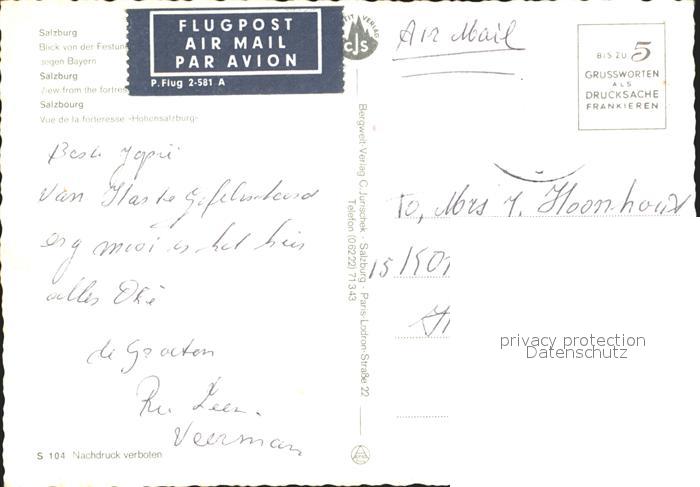 Salzburg
Blick von der Festun
gegen Bayern
Salzburg
View from the fortres
Salzbourg
Vue de la forteresse »Hohensalzburg«
FLUGPOST
AIR MAIL
PAR AVION
P. Flug 2-581 A
VERLAG
cJs
Air Mail
BIS ZU 5
GRUSSWORTEN
ALS
DRUCKSACHE
FRANKIEREN
Beste Japie
Van Harte Gefeliciteerd
erg mooi is het hier
alles Oké
de Groeten
Leen.
Veerman
Bergwelt-Verlag C. Jurischek · Salzburg · Paris-Lodron-Straße 22
Telefon (06222) 71343
To, Mrs J. Hoornhout
15
privacy protection
Datenschutz
S 104 Nachdruck verboten